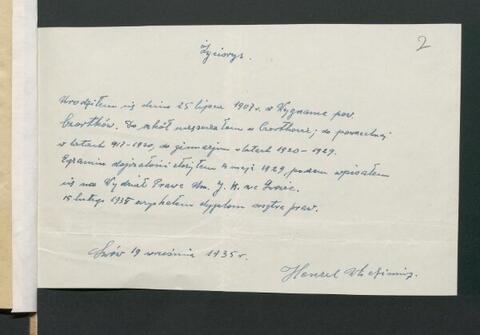 2
Życiorys.
Urodziłem się dnia 25 lipca 1907 r. w Wygnance pow.
Czortków. Do szkół uczęszczałem w Czortkowie; do powszechnej
w latach 917-1920, do gimnazjum w latach 1920-1929.
Egzamin dojrzałości złożyłem w maju 1929, poczem wpisałem
się na Wydział Prawa Uniw. J. K. we Lwowie.
15 lutego 1935 uzyskałem dyplom magistra praw.
Lwów 19 września 1935 r.
Henzel Włodzimierz.